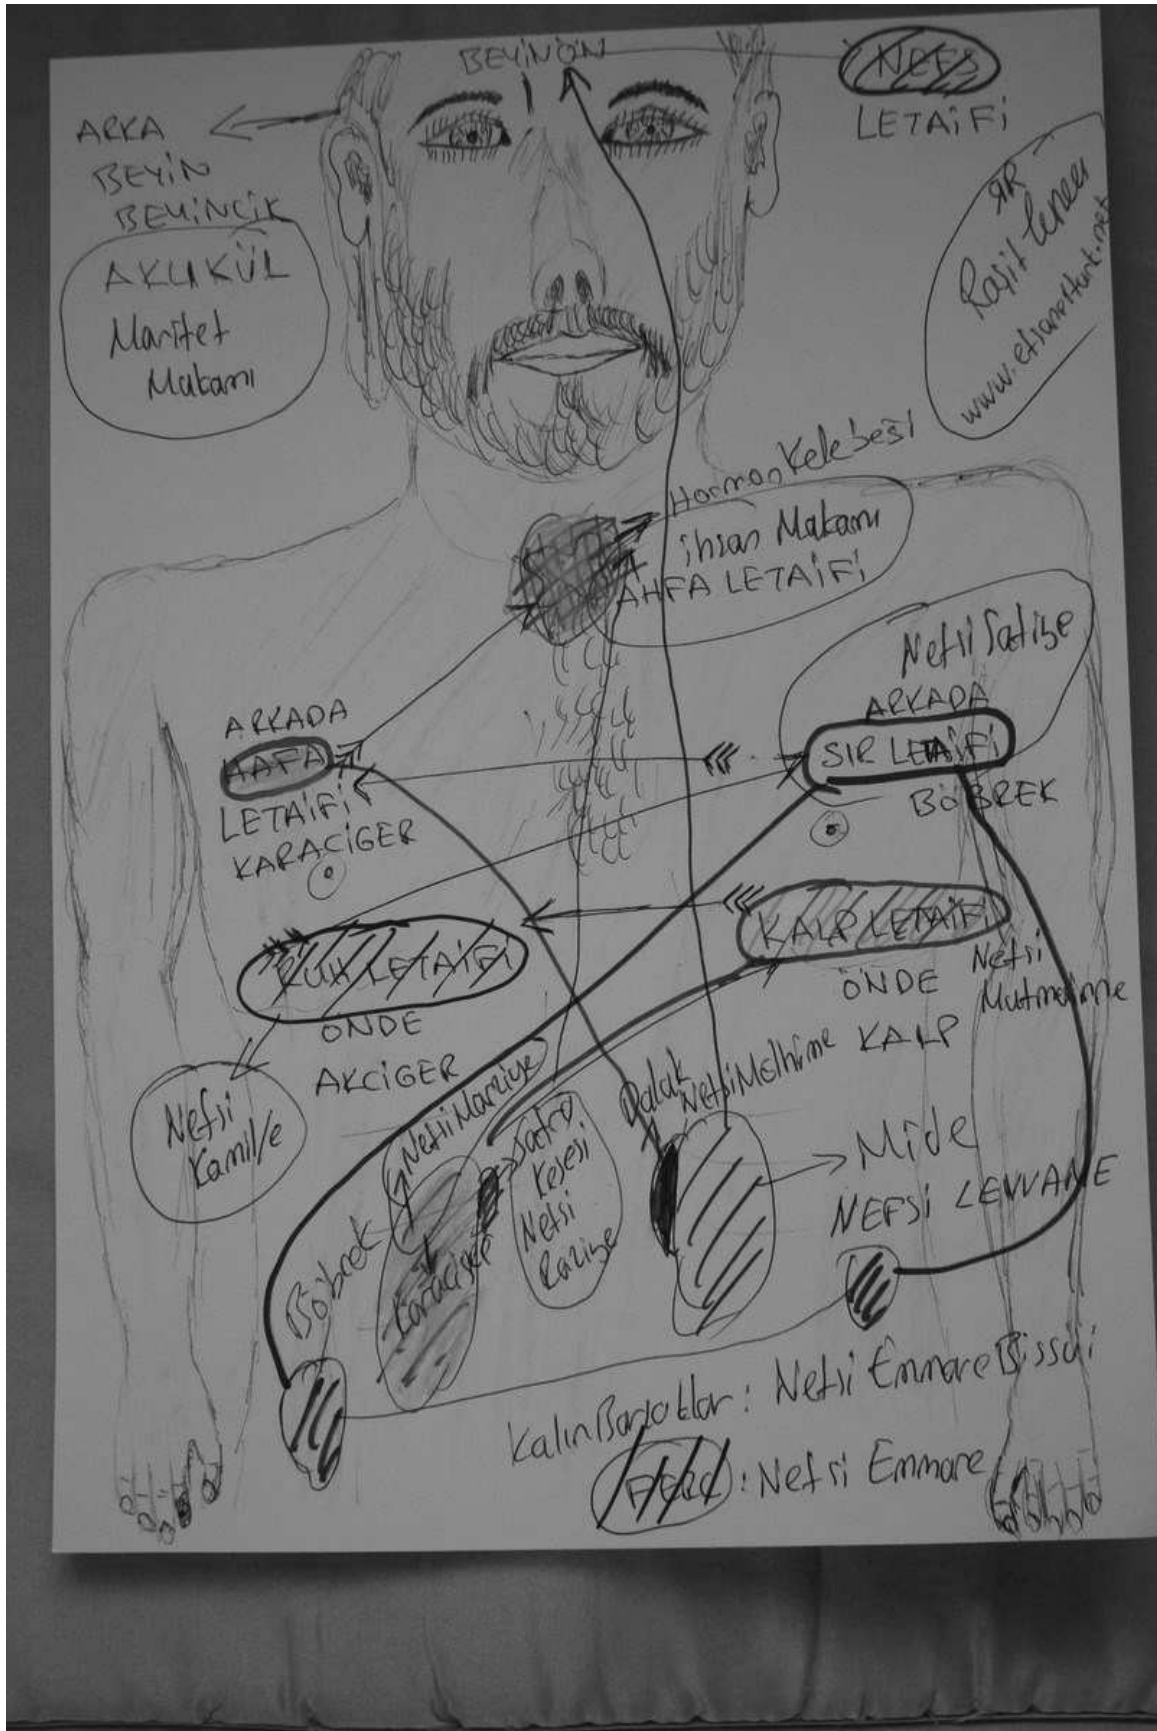 BEYİN ÖN
NEFS
LETAİFİ
ARKA
BEYİN
BEYİNCİK
AKLI KÜL
Marifet
Makamı
RR
Raşit Tunca
Hormon Kelebeği
ihsan Makamı
AHFA LETAİFİ
Nefsi Safiye
ARKADA
SIR LETAİFİ
BÖBREK
ARKADA
HAFA
LETAİFİ
KARACİGER
RUH LETAİFİ
ÖNDE
AKCİGER
KALP LETAİFİ
ÖNDE
KALP
Nefsi
Mutmainne
Nefsi
Kamil/e
Nefsi Marziye
Safra
Kesesi
Nefsi
Raziye
Dalak
Nefsi Mülhime
Mide
NEFSİ LEVVAME
Böbrek
Karaciger
Kalın Barsaklar: Nefsi Emmare Bissüi
: Nefsi Emmare